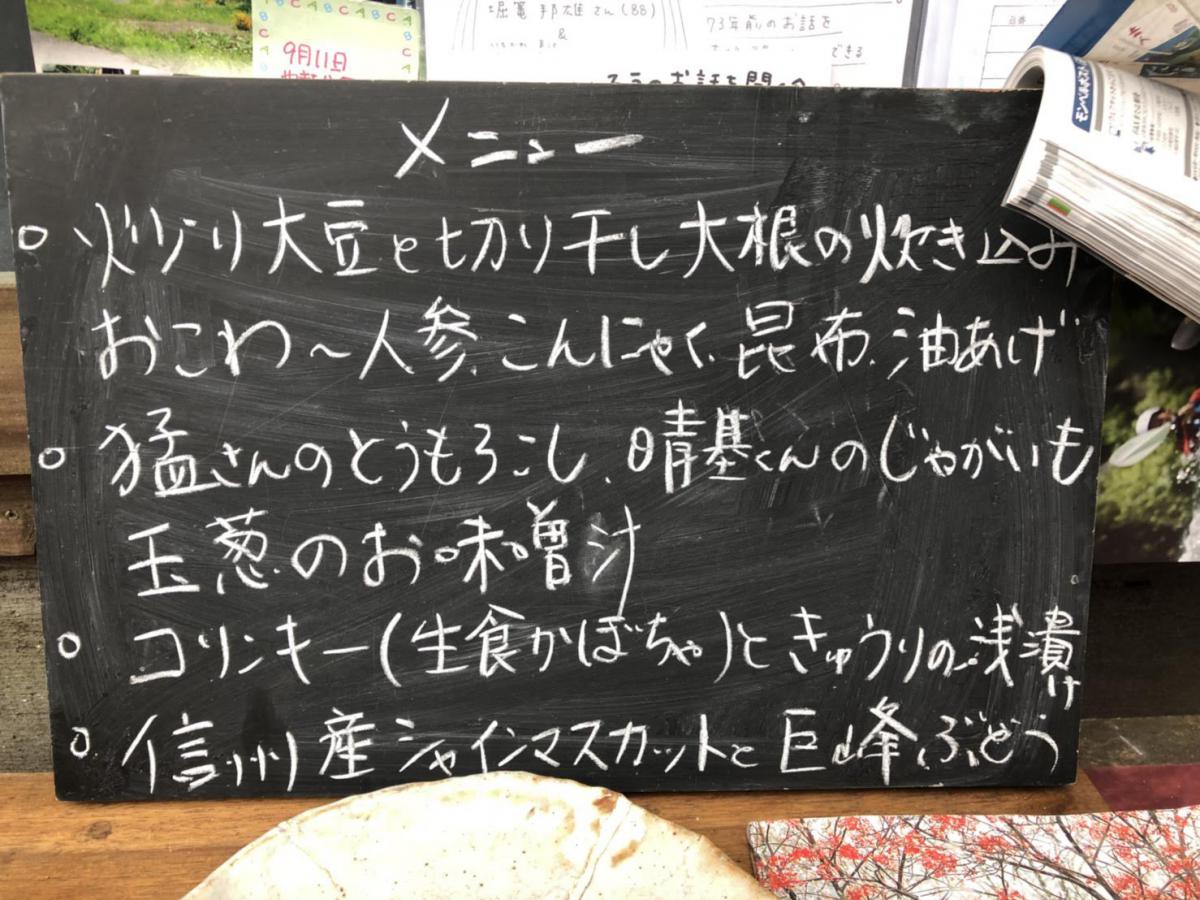 堀篭邦雄さん(88)
&
73年前のお話を
できる
9月11日
のお話を聞い
モンベルポスト
メニュー
○ ドリンリ大豆と切り干し大根の炊き込み
おこわ~人参、こんにゃく、昆布、油あげ
○ 猛さんのとうもろこし、晴基くんのじゃがいも
玉葱のお味噌汁
○ コリンキー(生食かぼちゃ)ときゅうりの浅漬け
○ 信州産シャインマスカットと巨峰ぶどう